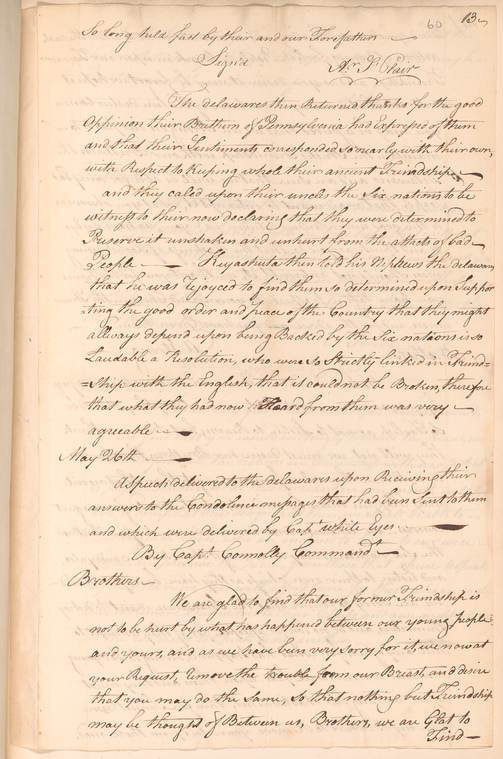 60 13
So long held fast by their and our Forefathers
Sign'd
Ar. St. Clair
The delawares then Returned thanks for the good
Oppinion their Brethern of Pennsylvania had Expressed of them
and that their Sentiments corresponded so nearly with their own,
with Respect to Keeping whole their ancient Friendship
and they caled upon their uncles the Six nations to be
witness to their now declaring that they were determined to
Preserve it unshaken and unhurt from the attacts of bad
People — Keyashuta then told his Nphews the delawars
that he was Rejoyced to find them so determined upon Suppor
=ting the good order and peace of the Country that they might
allways depend upon being Backed by the Six nations is so
Laudable a Resolution, who were so Strictly linked in Friend=
=Ship with the English, that is could not be Broken, therefore
that what they had now Heard from them was very
agreeable
May 26th
A Speech delivered to the delawares upon Receiving their
answers to the Condolence messages that had been Sent to them
and which were delivered by Capt. white Eyes
By Capt. Connolly Commandt.
Brothers
We are glad to find that our former Friendship is
not to be hurt by what has happened between our young People
and yours, and as we have been very Sorry for it, we now at
your Request, remove the trouble from our Breast, and desire
that you may do the Same, So that nothing but Friendship
may be thought of Between us, Brothers, we are Glat to
Find —